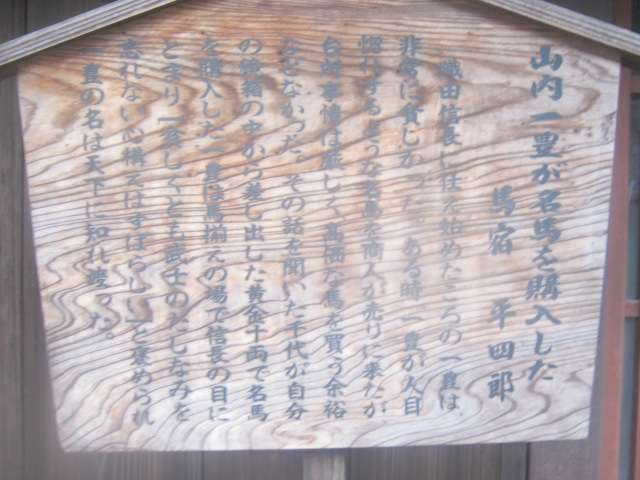 山内一豊が名馬を購入した
馬宿 平四郎
織田信長に仕え始めたころの一豊は、
非常に貧しかった。ある時一豊が人目
惚れするような名馬を商人が売りに来たが
台所事情は厳しく、高価な馬を買う余裕
などなかった。その話を聞いた千代が自分
の鏡箱の中から差し出した黄金十両で名馬
を購入した一豊は馬揃えの場で信長の目に
とまり「貧しくとも武士のたしなみを
忘れない心構えはすばらしい」と褒められ
一豊の名は天下に知れ渡った。